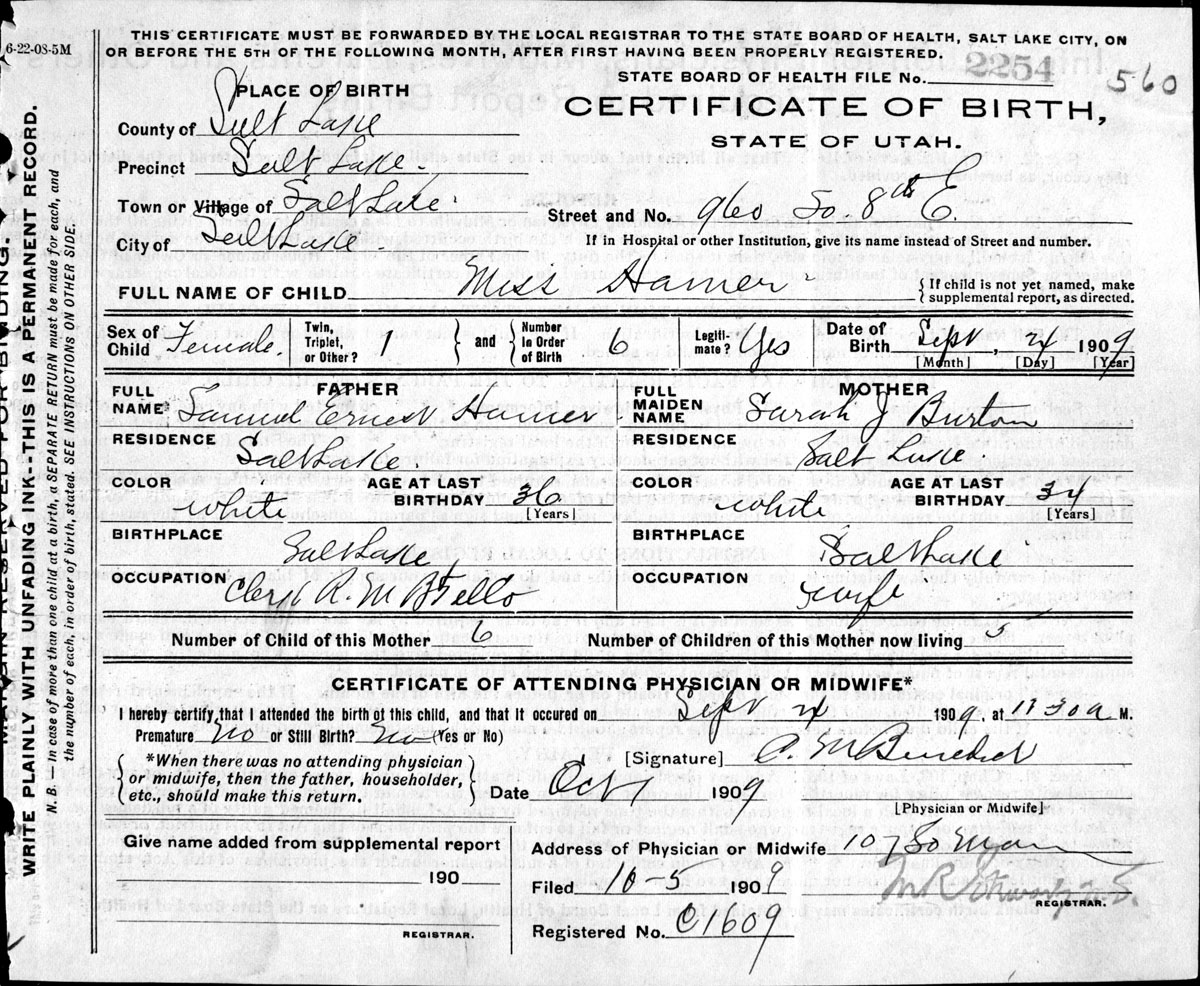 6-22-08-5M
THIS CERTIFICATE MUST BE FORWARDED BY THE LOCAL REGISTRAR TO THE STATE BOARD OF HEALTH, SALT LAKE CITY, ON
OR BEFORE THE 5TH OF THE FOLLOWING MONTH, AFTER FIRST HAVING BEEN PROPERLY REGISTERED.
STATE BOARD OF HEALTH FILE No. 2254 560
PLACE OF BIRTH
CERTIFICATE OF BIRTH,
STATE OF UTAH.
County of Salt Lake
Precinct Salt Lake
Town or Village of Salt Lake
Street and No. 960 So 8th E.
City of Salt Lake
If in Hospital or other Institution, give its name instead of Street and number.
FULL NAME OF CHILD Miss Hamer
{ If child is not yet named, make
supplemental report, as directed.
Sex of Child Female
Twin, Triplet, or Other? 1 } and { Number In Order of Birth 6
Legiti-mate? Yes
Date of Birth Sept, 24 1909
[Month] [Day] [Year]
FATHER
FULL NAME Samuel Ernest Hamer
MOTHER
FULL MAIDEN NAME Sarah J Burton
RESIDENCE Salt Lake
RESIDENCE Salt Lake
COLOR White
AGE AT LAST BIRTHDAY 36 [Years]
COLOR White
AGE AT LAST BIRTHDAY 34 [Years]
BIRTHPLACE Salt Lake
BIRTHPLACE Salt Lake
OCCUPATION
OCCUPATION wife
Number of Child of this Mother 6
Number of Children of this Mother now living 5
CERTIFICATE OF ATTENDING PHYSICIAN OR MIDWIFE*
I hereby certify that I attended the birth of this child, and that it occured on Sept 24 1909, at 11 30 a M.
Premature No or Still Birth? No (Yes or No)
[Signature] A. M. Benedict
{ *When there was no attending physician
or midwife, then the father, householder,
etc., should make this return. }
Date Oct 1909
[Physician or Midwife]
Give name added from supplemental report
190
REGISTRAR.
Address of Physician or Midwife 107 So Main
Filed 10-5 1909
REGISTRAR.
Registered No. C1609
RESERVED FOR BINDING.
WRITE PLAINLY WITH UNFADING INK--THIS IS A PERMANENT RECORD.
N. B. — In case of more than one child at a birth, a SEPARATE RETURN must be made for each, and
the number of each, in order of birth, stated. SEE INSTRUCTIONS ON OTHER SIDE.